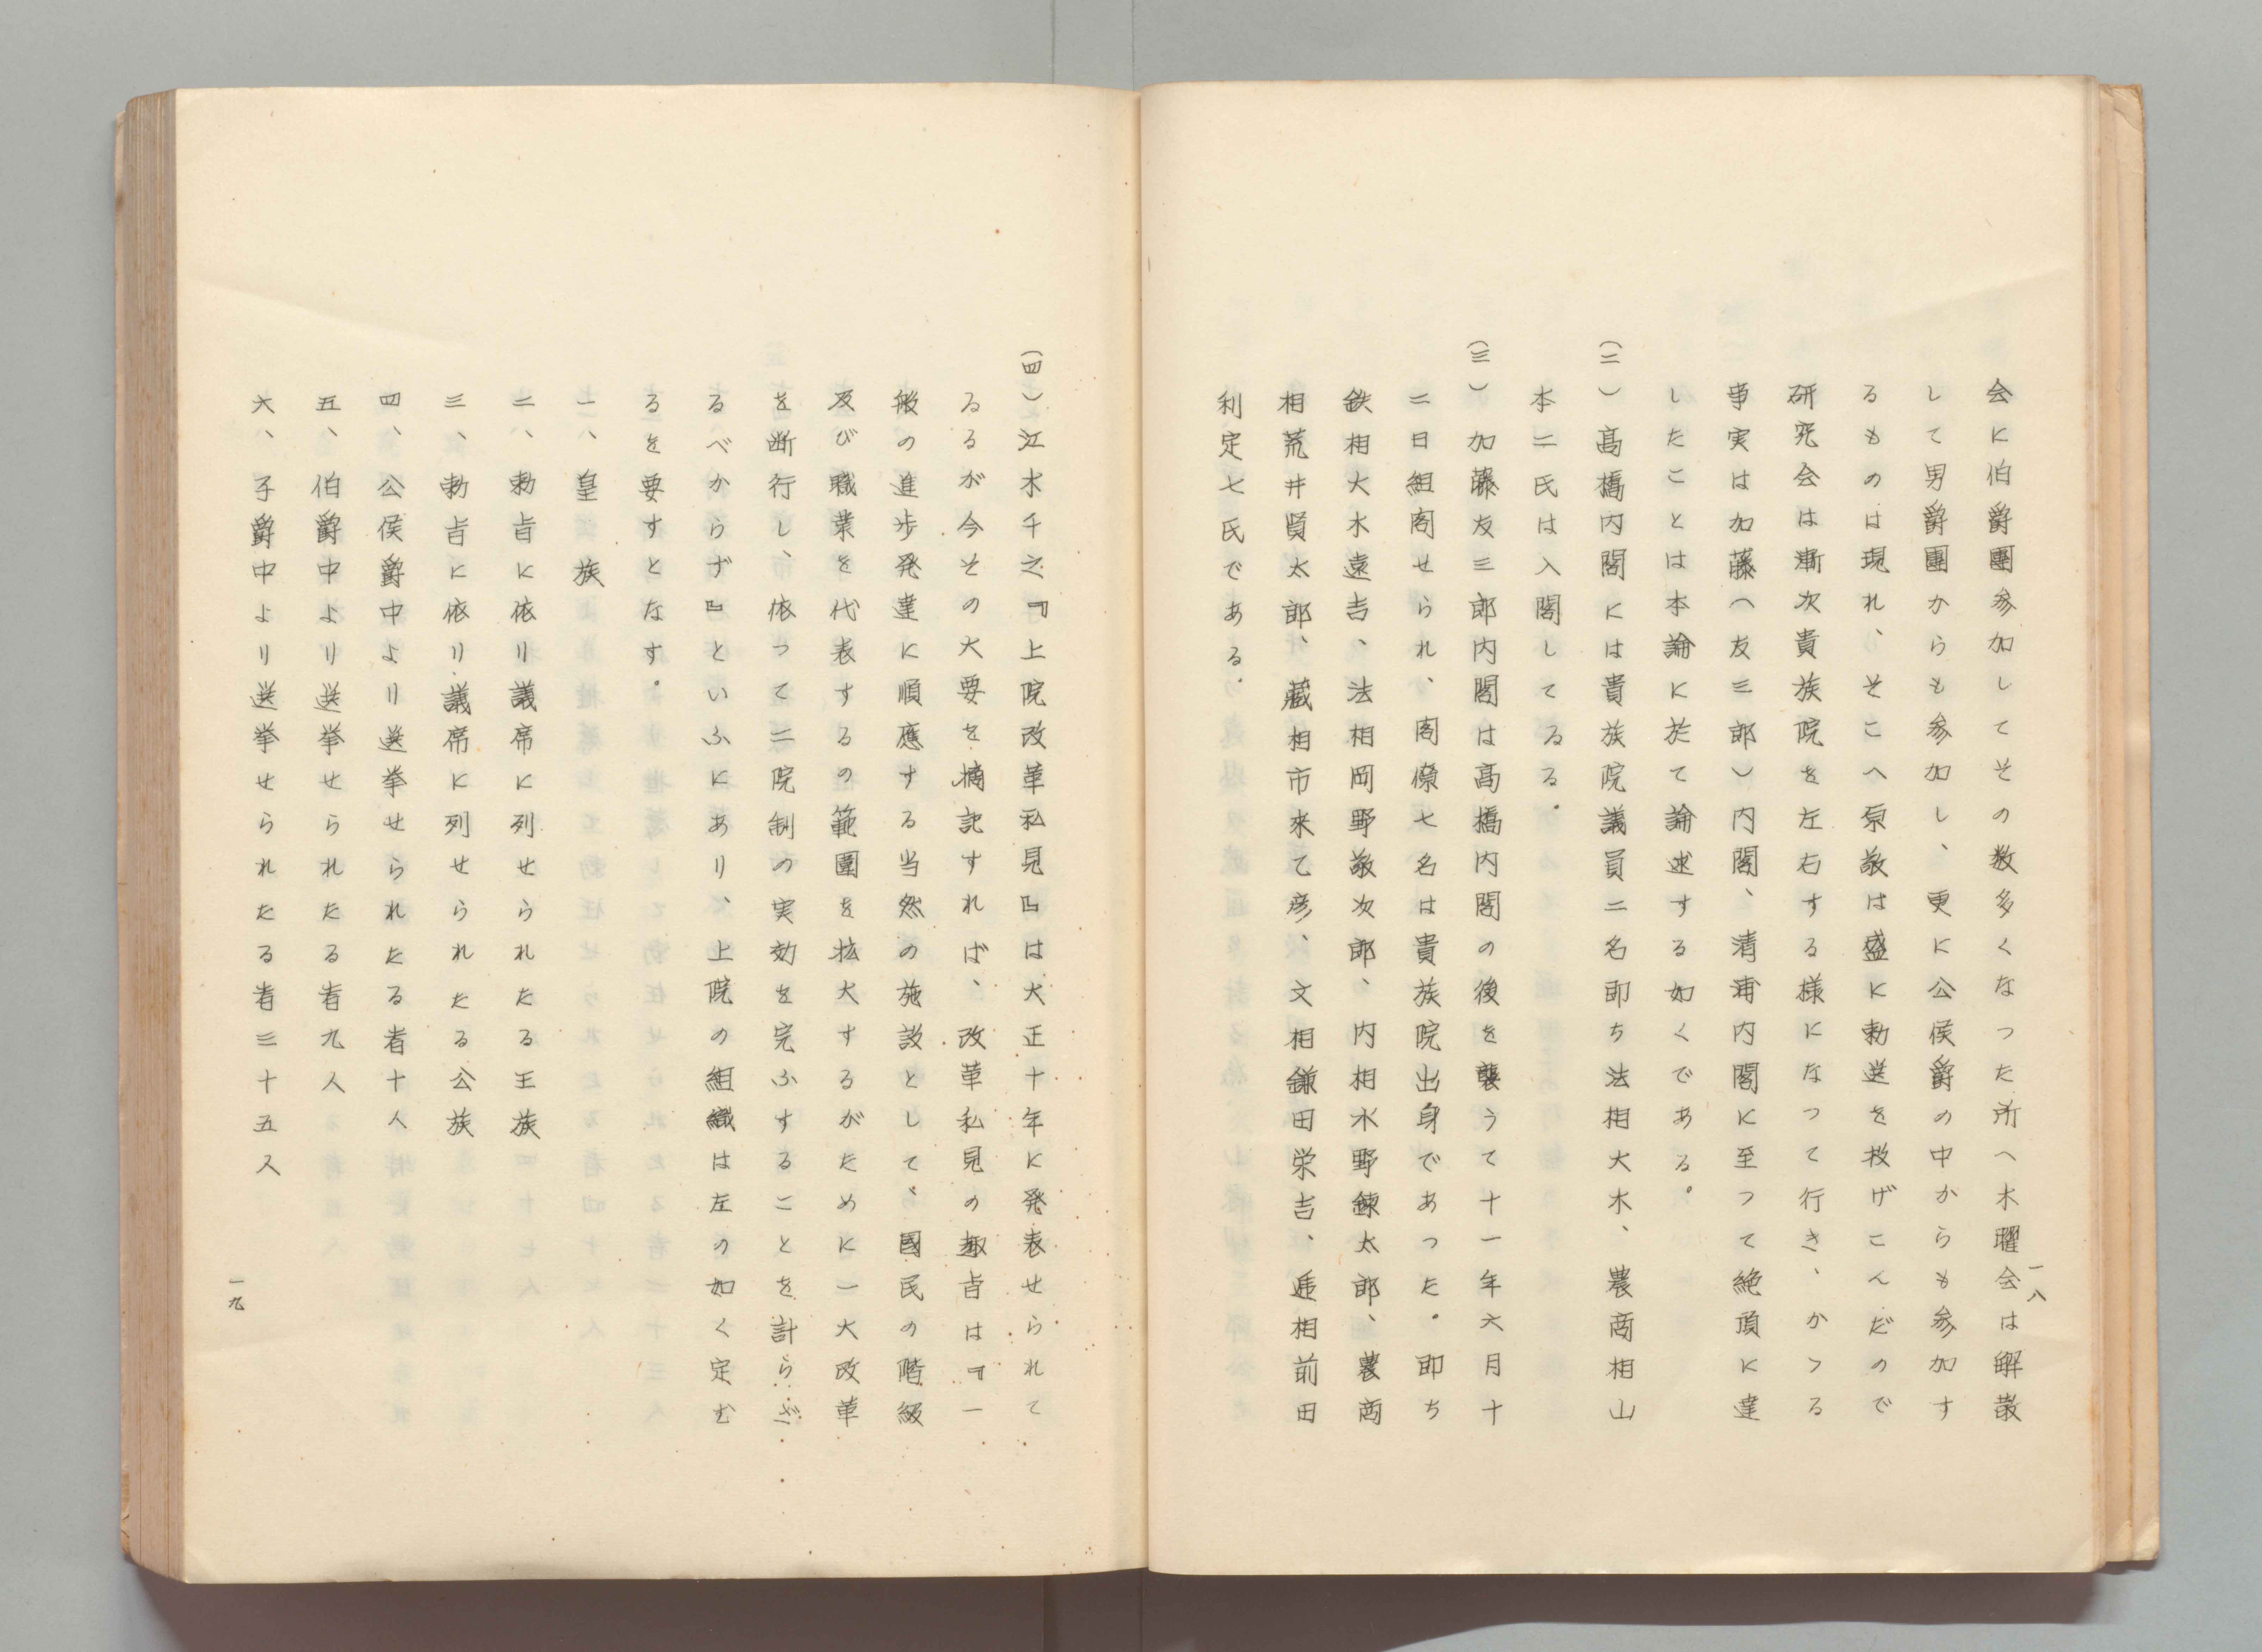 会に伯爵團参加してその数多くなった所へ木曜会は解散
して男爵團からも参加し、更に公侯爵の中からも参加す
るものは現れ、そこへ原敬は盛に勅選を投げこんだので
研究会は漸次貴族院を左右する様になって行き、かつる
事実は加藤（友三郎）内閣、清浦内閣に至つて絶頂に達
したことは本論に於て論述する如くである。
（二）高橋内閣には貴族院議員二名即ち法相大木、農商相山
本二氏は入閣してゐる。
（三）加藤友三郎内閣は高橋内閣の後を襲うて十一年六月十
二日組閣せられ、閣僚七名は貴族院出身であった。即ち
鉄相大木遠吉、法相岡野敬次郎、内相水野錬太郎、農商
相荒井賢太郎、蔵相市来乙彦、文相鎌田栄吉、逓相前田
利定七氏である。
一八
（四）江木千之『上院改革私見』は大正十年に発表せられて
ゐるが今その大要を摘記すれば、改革私見の趣旨は『一
般の進歩発達に順應する当然の施設として、國民の階級
及び職業を代表するの範圍を拡大するがために一大改革
を断行し、依つて二院制の実効を完ふすることを計らざ
るべからず』といふにあり、上院の組織は左の如く定む
るを要すとなす。
一、皇族
二、勅旨に依リ議席に列せられたる王族
三、勅旨に依リ議席に列せられたる公族
四、公侯爵中よリ選挙せられたる者十人
五、伯爵中よリ選挙せられたる者九人
六、子爵中よリ選挙せられたる者三十五人
一九